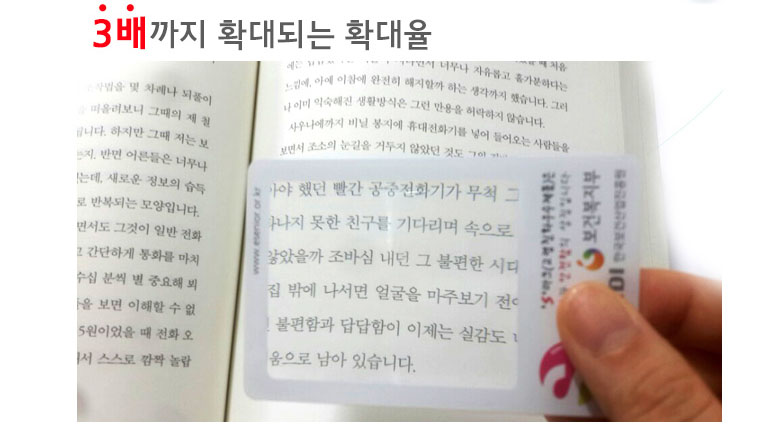 3배까지 확대되는 확대율
몇 차례나 되풀이
떠올려보니 그때의 제 철
니다. 하지만 그때 저는 보
반면 어른들은 너무나
는데, 새로운 정보의 습득
로 반복되는 모양입니다.
면서도 그것이 일반 전화
간단하게 통화를 마치
수십 분씩 별 중요해 뵈
을 보면 이해할 수 없
5원이었을 때 전화 오
서 스스로 깜짝 놀람
너무나 자유롭고 홀가분하다는
느낌에, 아예 이참에 완전히 해지할까 하는 생각까지 했습니다. 그러
나 이미 익숙해진 생활방식은 그런 만용을 허락하지 않습니다.
사우나에까지 비닐 봉지에 휴대전화기를 넣어 들어오는 사람들을
보면서 조소의 눈길을 거두지 않았던 것도 그의
아야 했던 빨간 공중전화기가 무척 그
나지 못한 친구를 기다리며 속으로
않았을까 조바심 내던 그 불편한 시대
집 밖에 나서면 얼굴을 마주보기 전
불편함과 답답함이 이제는 실감도
움으로 남아 있습니다.
www.esenior.or.kr
보건복지부
한국보건산업진흥원